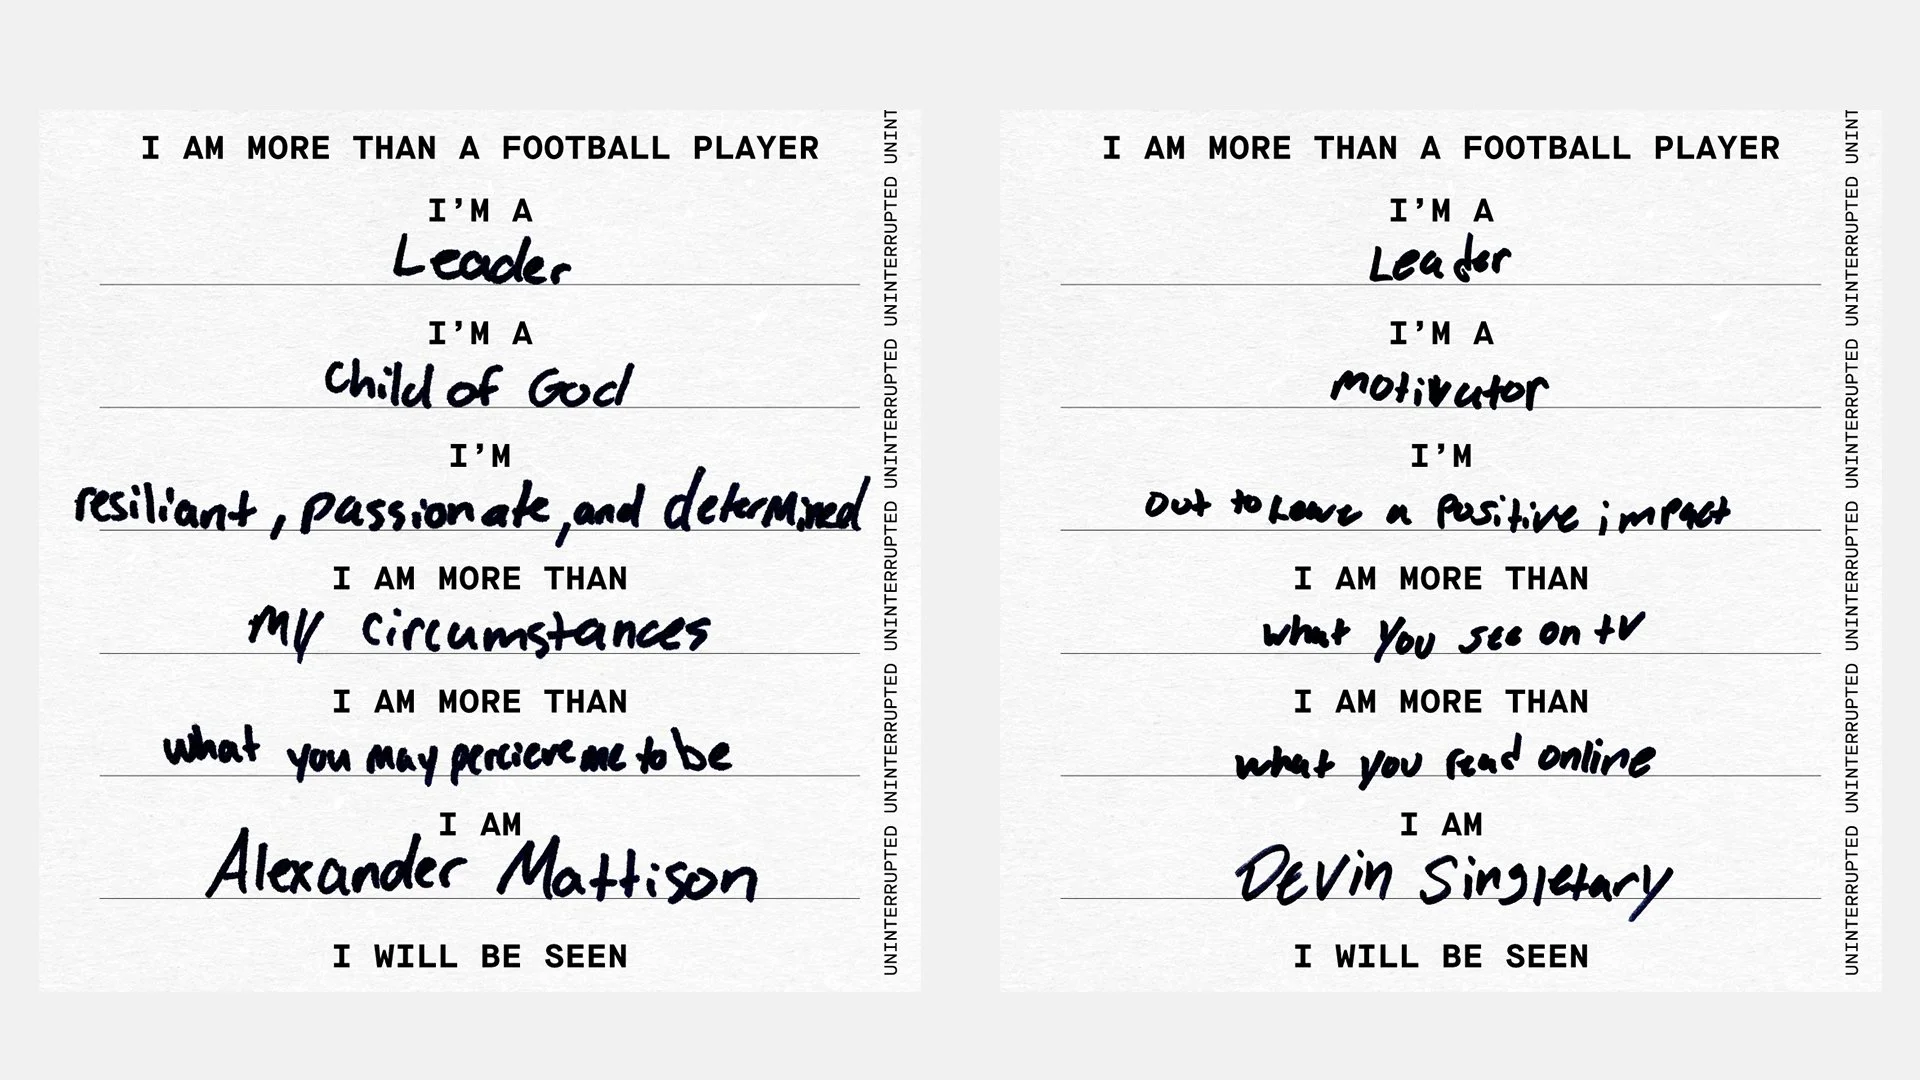 I AM MORE THAN A FOOTBALL PLAYER
I'M A
Leader
I'M A
Child of God
I'M
resiliant, passionate, and determined
I AM MORE THAN
my circumstances
I AM MORE THAN
what you may percieve me to be
I AM
Alexander Mattison
I WILL BE SEEN
UNINTERRUPTED UNINTERRUPTED UNINTERRUPTED UNINTERRUPTED UNINTERRUPTED UNINT
I AM MORE THAN A FOOTBALL PLAYER
I'M A
Leader
I'M A
motivator
I'M
out to Leave a positive impact
I AM MORE THAN
what you see on tV
I AM MORE THAN
what you read online
I AM
Devin Singletary
I WILL BE SEEN
UNINTERRUPTED UNINTERRUPTED UNINTERRUPTED UNINTERRUPTED UNINTERRUPTED UNINT